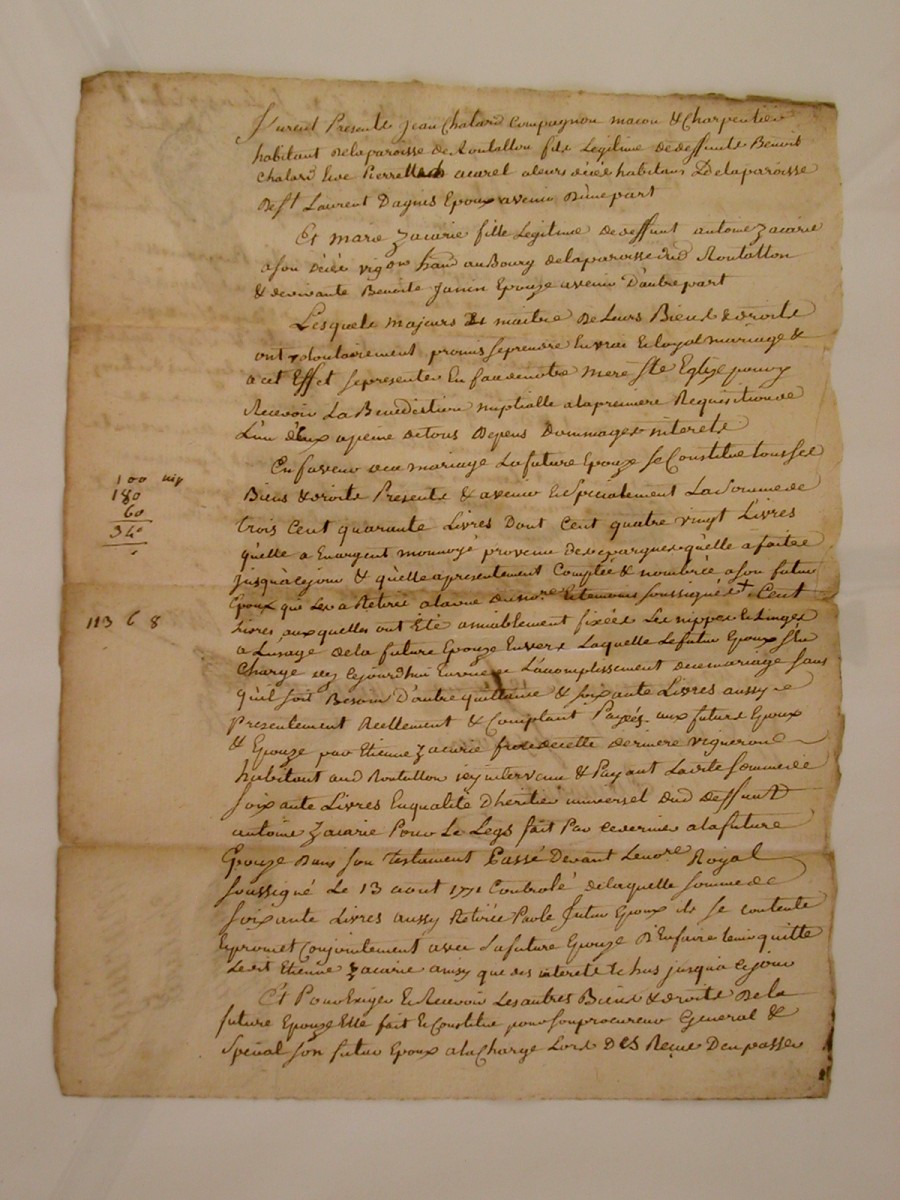 Furent Presents Jean Chalard Compagnon macon & Charpentier
habitant Delaparoisse de Montallon fils Legitime de deffunts Benoit
Chalard Et Pierrette acarel aleurs décés habitans Delaparoisse
De St Laurent Dagnis Epoux avenir D'une part
Et marie Zacarie fille Legitime de deffunt antoine Zacarie
a son décés vigon hant au Bourg delaparoisse dud Montallon
& de vivante Benoite Janin Epouze avenir D'autre part
Lesquels majeurs & maitre De Leurs Biens & droits
ont volontairement promis se prendre En vrai & Loyal mariage &
a cet Effet se presenter En face de notre mere Ste Eglize pour y
Recevoir La Benediction nuptialle a la premiere Requisition de
L'un d'Eux a peine de tous Depens Dommages & interets
En faveur de ce mariage La future Epouze Se Constitue tous ses
Biens & droits Presents & avenir & Specialement La Somme de
100 nip
180
60
340
trois Cent quarante Livres Dont Cent quatre vingt Livres
qu'elle a En argent monnoyé provenu des epargnes qu'elle a faites
jusqu'a ce jour & qu'elle a presentement Comptée & nombrée a son futur
Epoux qui Les a Retirée a la vue du nore & temoins soussignés + Cent
113 6 8
Livres auxquelles ont Eté amiablement fixées Les nippes & Linges
a L'usage de la future Epouze Envers Laquelle Le futur Epoux s'en
Charge des ce jourd'hui En vue de L'acomplissement de ce mariage sans
qu'il soit Besoin D'autre quittance & soixante Livres aussy
Presentement Reellement & Comptant Payés aux futurs Epoux
& Epouze par Etienne Zacarie frere de cette derniere vigneron
habitant aud Montallon icy intervenu & Payant Ladite Somme de
Soixante Livres En qualité D'heritier universel dud deffunt
antoine Zacarie Pour Le Legs fait Par ce dernier a la future
Epouze Dans son testament Passé Devant Le nore Royal
soussigné Le 13 aout 1771 Controlé de laquelle somme de
soixante Livres aussy Retirée Par le futur Epoux il se contente
& promet Conjointement avec La future Epouze D'En faire tenir quitte
Ledit Etienne Zacarie ainsy que des interets Echus jusqu'a ce jour
Et Pour Exiger & Recevoir Les autres Biens & droits De la
future Epouze Elle fait & Constitue pour son procureur General &
Special son futur Epoux a la Charge Lors Des Reçus D'en passer